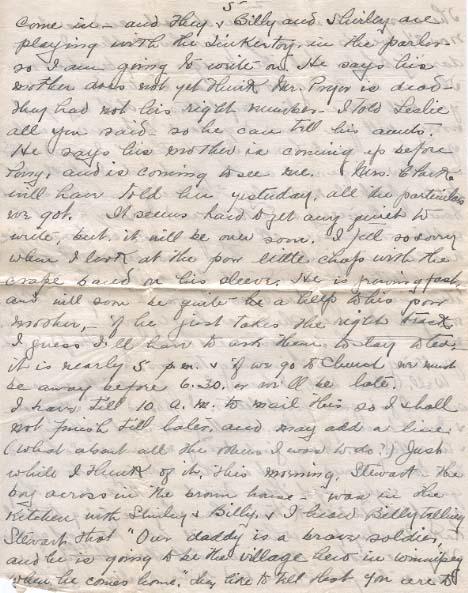 5
come in – and they & Billy and Shirley are
playing with the Tinkertoy, in the parlor
so I am going to write on. He says his
mother does not yet think Mr. Pryor is dead –
They had not his right number – I told Leslie
all you said – so he can tell his aunts.
He says his mother is coming up before
long, and is coming to see me. Mrs. Clark
will have told him yesterday, all the particulars
we got. It seems hard to get any quiet to
write, but it will be over soon. I felt so sorry
when I look at the poor little chap with the
crape band on his sleeve. He is growing fast
and will soon be quite be a help to his poor
mother, – if he just takes the right track.
I guess I'll have to ask them to stay to tea,
it is nearly 5 p.m. & if we go to Church we must
be away before 6.30, or we'll be late.
I have till 10 a.m. to mail this so I shall
not finish till later, and may add a line.
(What about all the others I was to do?) Just
while I think of it, this morning, Stewart – the
boy across in the brown house – was in the
kitchen with Shirley & Billy. & I heard Billy telling
Stewart that "Our daddy is a brave soldier,
and he is going to be the village hero in Winnipeg
when he comes home." They like to tell that you are to